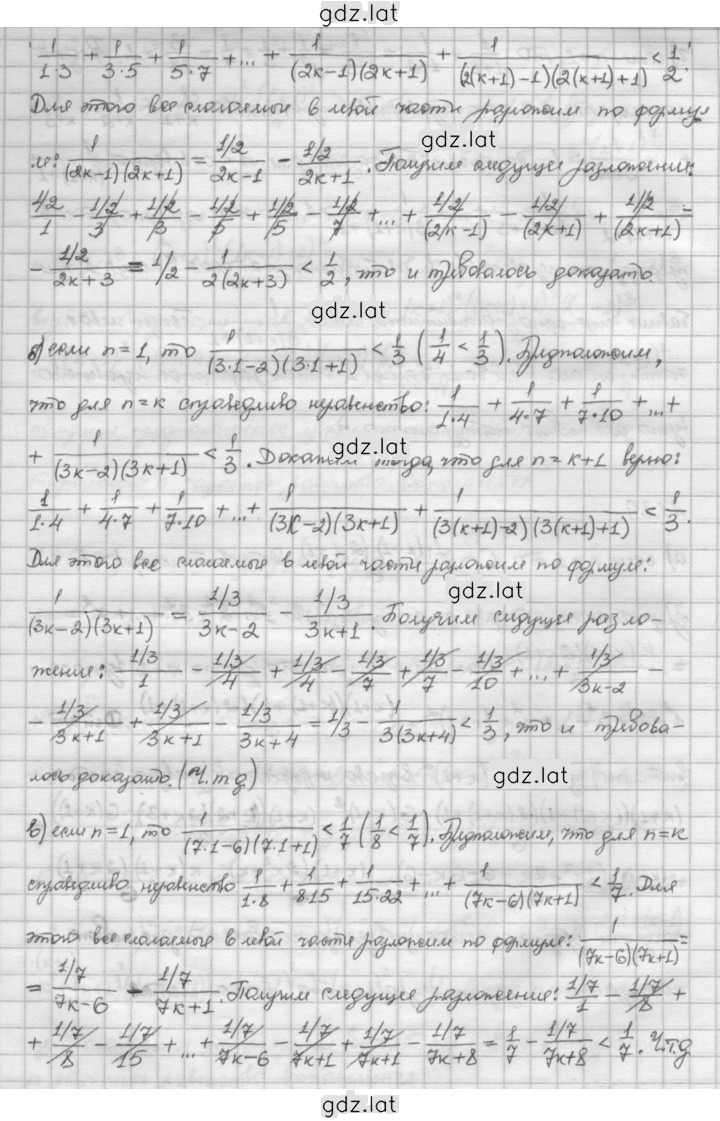 gdz.lat
1/(1·3) + 1/(3·5) + 1/(5·7) + ... + 1/((2к-1)(2к+1)) + 1/((2(к+1)-1)(2(к+1)+1)) < 1/2.
Для этого все слагаемые в левой части разложим по форму-
ле: 1/((2к-1)(2к+1)) = (1/2)/(2к-1) - (1/2)/(2к+1). Получим следущее разложение:
gdz.lat
(1/2)/1 - (1/2)/3 + (1/2)/3 - (1/2)/5 + (1/2)/5 - (1/2)/7 + ... + (1/2)/(2к-1) - (1/2)/(2к+1) + (1/2)/(2к+1) -
- (1/2)/(2к+3) = 1/2 - 1/(2(2к+3)) < 1/2, что и требовалось доказать.
gdz.lat
б) если n=1, то 1/((3·1-2)(3·1+1)) < 1/3 (1/4 < 1/3). Предположим,
что для n=к справедливо неравенство: 1/(1·4) + 1/(4·7) + 1/(7·10) + ... +
gdz.lat
+ 1/((3к-2)(3к+1)) < 1/3. Докажем тогда, что для n=к+1 верно:
1/(1·4) + 1/(4·7) + 1/(7·10) + ... + 1/((3к-2)(3к+1)) + 1/((3(к+1)-2)(3(к+1)+1)) < 1/3.
Для этого все слагаемые в левой части разложим по формуле:
gdz.lat
1/((3к-2)(3к+1)) = (1/3)/(3к-2) - (1/3)/(3к+1). Получим следущее разло-
жение: (1/3)/1 - (1/3)/4 + (1/3)/4 - (1/3)/7 + (1/3)/7 - (1/3)/10 + ... + (1/3)/(3к-2) -
- (1/3)/(3к+1) + (1/3)/(3к+1) - (1/3)/(3к+4) = 1/3 - 1/(3(3к+4)) < 1/3, что и требова-
лось доказать. (Ч.т.д)
gdz.lat
в) если n=1, то 1/((7·1-6)(7·1+1)) < 1/7 (1/8 < 1/7). Предположим, что для n=к
справедливо неравенство 1/(1·8) + 1/(8·15) + 1/(15·22) + ... + 1/((7к-6)(7к+1)) < 1/7. Для
gdz.lat
этого все слагаемые в левой части разложим по формуле: 1/((7к-6)(7к+1)) =
= (1/7)/(7к-6) - (1/7)/(7к+1). Получим следущее разложение: (1/7)/1 - (1/7)/8 +
gdz.lat
+ (1/7)/8 - (1/7)/15 + ... + (1/7)/(7к-6) - (1/7)/(7к+1) + (1/7)/(7к+1) - (1/7)/(7к+8) = 1/7 - (1/7)/(7к+8) < 1/7. Ч.т.д
gdz.lat